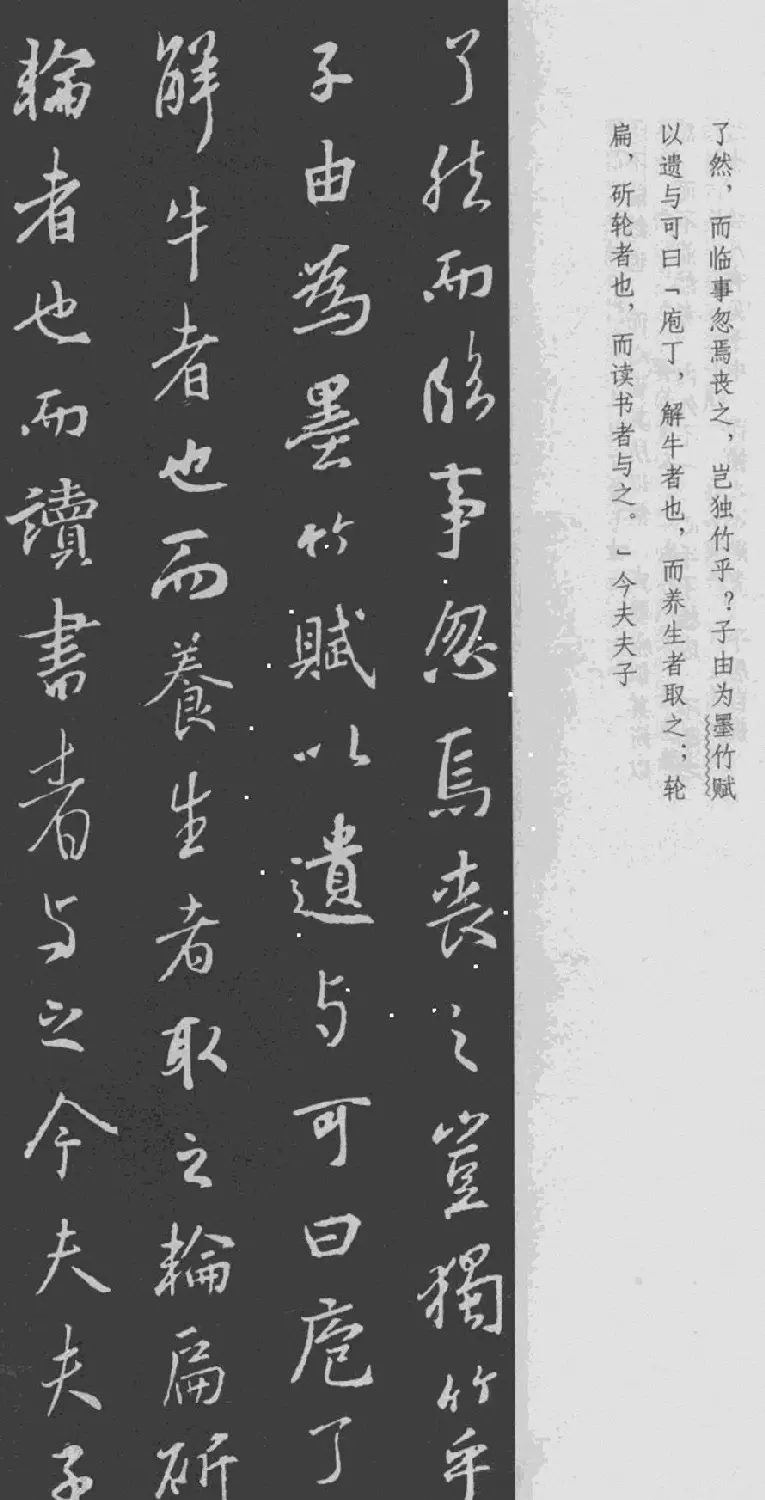 了然，而临事忽焉丧之，岂独竹乎？子由为墨竹赋
以遗与可曰「庖丁，解牛者也，而养生者取之；轮
扁，斫轮者也，而读书者与之。」今夫夫子
了然而臨事忽焉丧之豈獨竹乎
子由為墨竹賦以遺与可曰庖丁
解牛者也而養生者取之輪扁斫
輪者也而讀書者与之今夫夫子